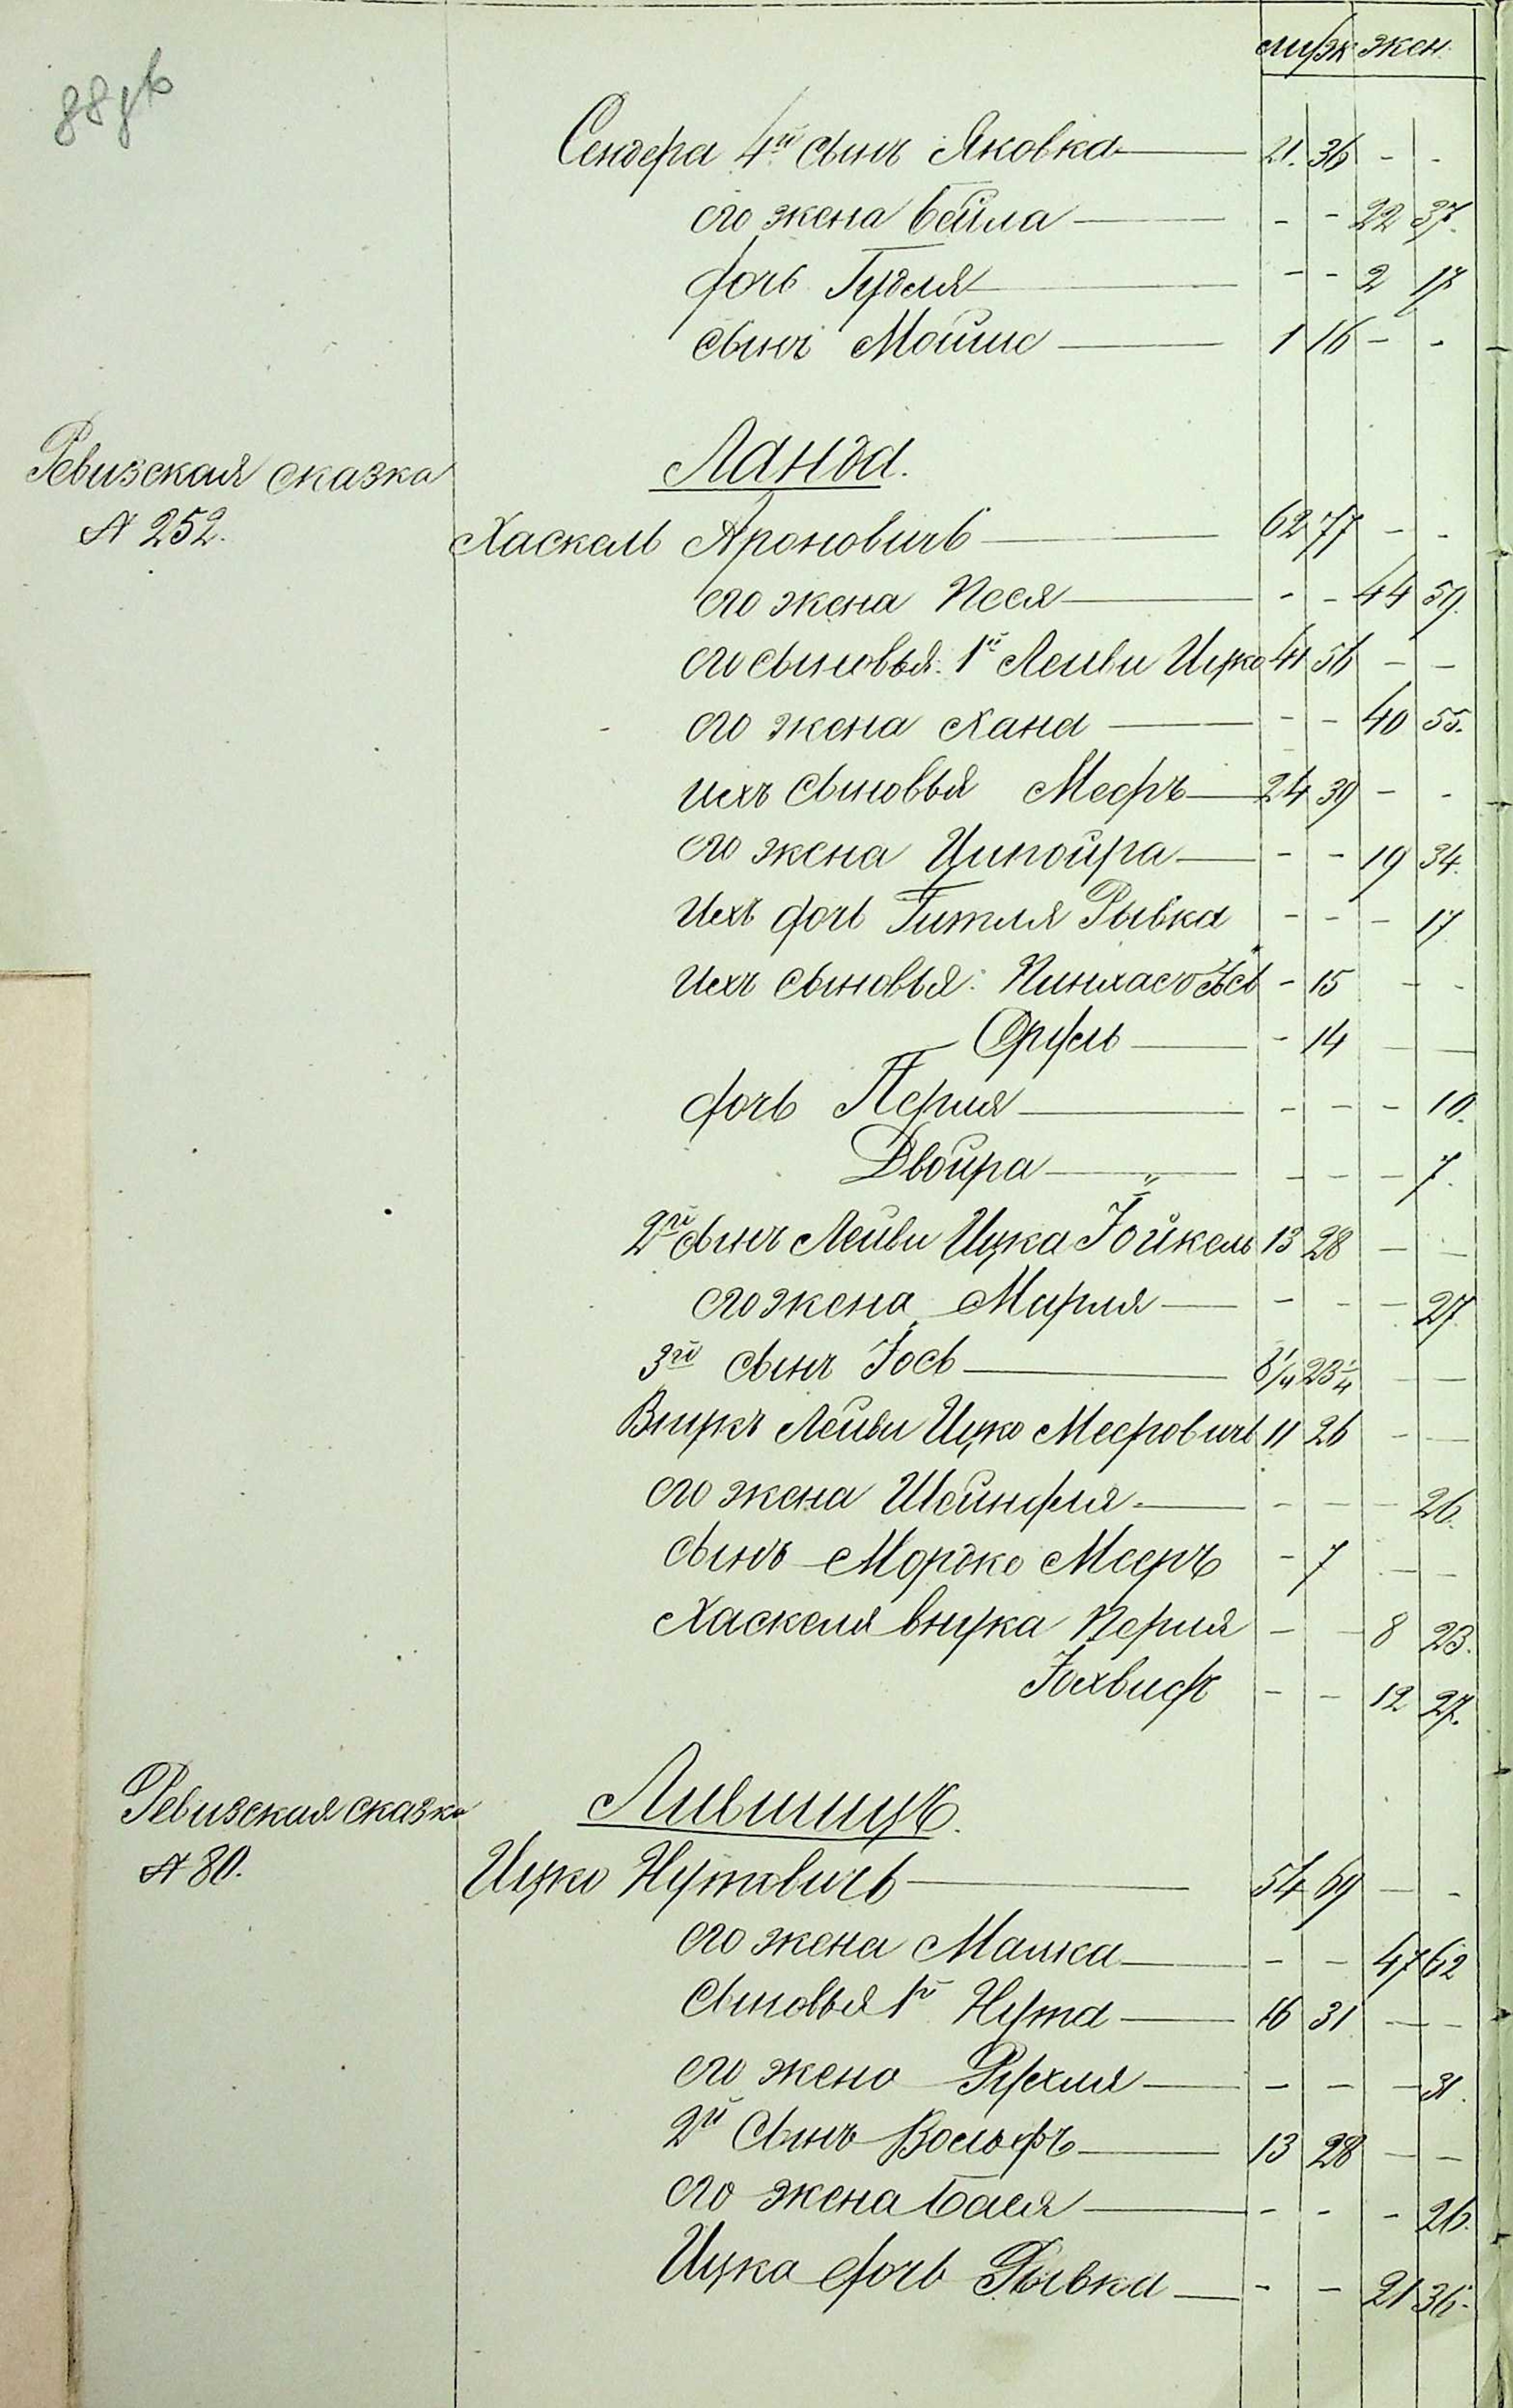 муж. жен.
88
Сендера 4й сынъ Яковка 21. 36 - -
его жена Бейла - - 22 37.
дочь Гудля - - 2 17
сынъ Мошко 1 16 - -
Ланда.
Ревизская сказка
№ 252.
Хаскель Ароновичъ 62 77 - -
его жена Песя - - 44 59.
его сыновья: 1й Лейви Ицко 41 56 - -
его жена Хана - - 40 55.
ихъ сыновья Мееръ 24 39 - -
его жена Ципойра - - 19 34.
Ихъ дочь Гитля Рывка - - - 17
ихъ сыновья: Пинхасъ Іось - 15 - -
Сруль - 14 - -
дочь Перля - - - 10.
Двойра - - - 7.
2й сынъ Лейви Ицка Іойкель 13 28 - -
его жена Мирля - - - 27
3й сынъ Іось 8 1/4 23 1/4 - -
Внукъ Лейви Ицко Мееровичъ 11 26 - -
его жена Шейндля - - - 26.
сынъ Мордко Мееръ - 7 - -
Хаскеля внука Перля - - 8 23.
Іохведъ - - 12 27.
Лившицъ.
Ревизская сказка
№ 80.
Ицко Нутовичъ 54 69 - -
его жена Малка - - 47 62
Сыновья 1й Нута 16 31 - -
его жена Рухля - - - 31.
2й Сынъ Вольфъ 13 28 - -
его жена Бася - - - 26.
Ицка дочь Рывка - - 21 36.